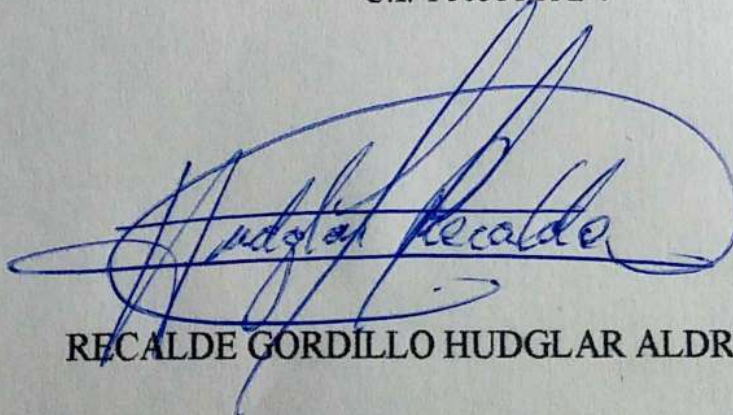 Hudglar Recalde
RECALDE GORDILLO HUDGLAR ALDR